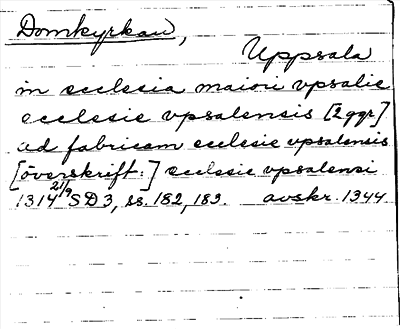 Domkyrkan,
Uppsala
in ecclesia maiori vpsalie
ecclesie vpsalensis [2 ggr]
ad fabricam ecclesie vpsalensis
[överskrift:] ecclesie vpsalensi
1314 21/9 SD3, ss. 182, 183. avskr. 1344.